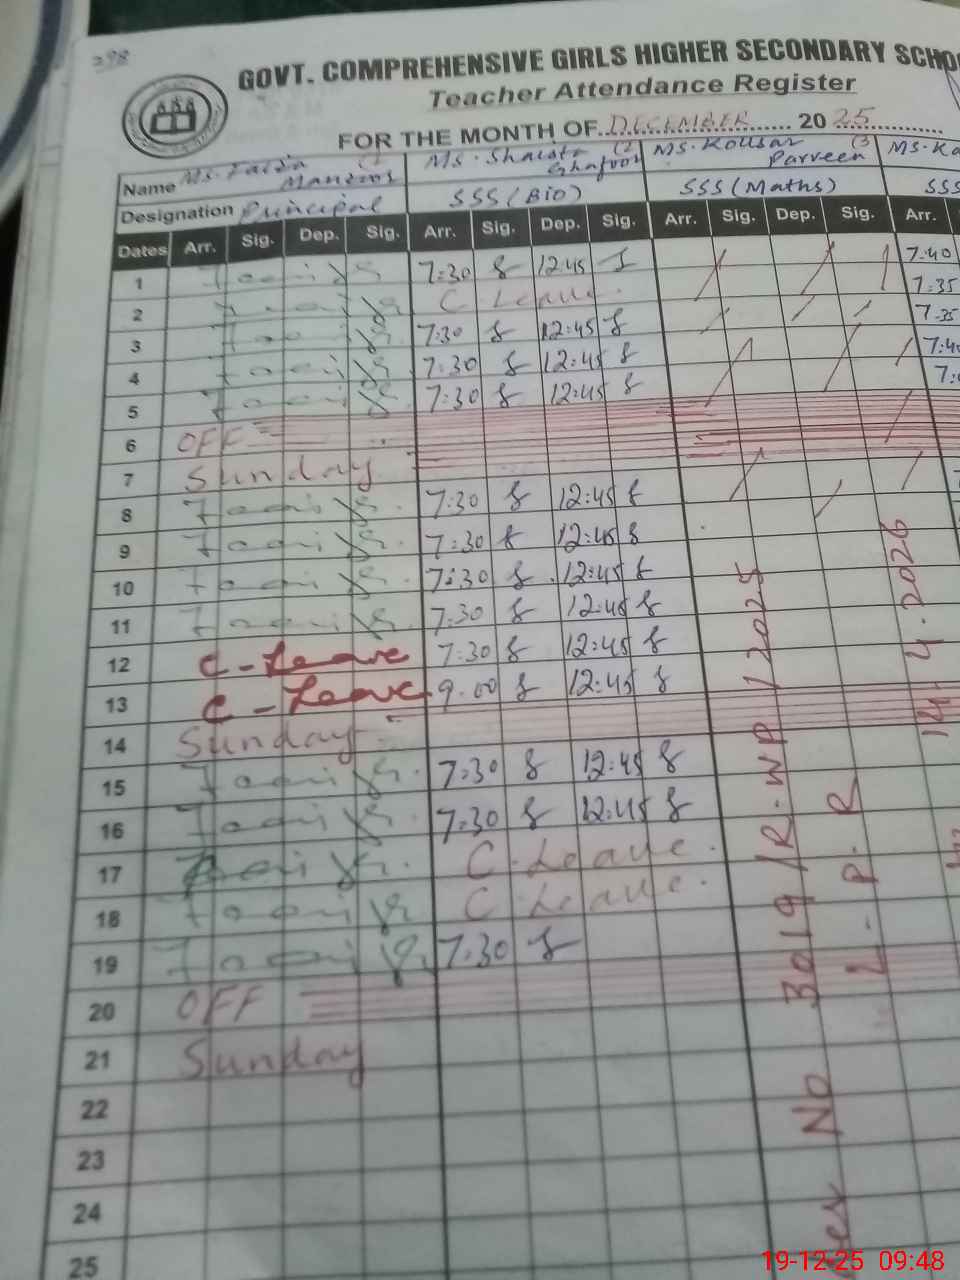 298
GOVT. COMPREHENSIVE GIRLS HIGHER SECONDARY SCHO
Teacher Attendance Register
FOR THE MONTH OF DECEMBER 2025
Name Ms. Faiza Manzoor (1 Ms. Shaista Ghafoor (2 Ms. Kousar Parveen (3) Ms. Ka
Designation Principal SSS (Bio) SSS (Maths) SSS
Dates Arr. Sig. Dep. Sig. Arr. Sig. Dep. Sig. Arr. Sig. Dep. Sig. Arr.
1 7:30 12:45 7:40
2 C Leave. 7:35
3 7:30 12:45 7:35
4 7:30 12:45
5 7:30 12:45
6 OFF
7 Sunday
8 7:30 12:45
9 7:30 12:45
10 7:30 12:45
11 7:30 12:45
12 C-Leave 7:30 12:45
13 C-Leave 9:00 12:45
14 Sunday
15 7:30 12:45
16 7:30 12:45
17 C. Leave.
18 C. Leave.
19 7:30
20 OFF
21 Sunday
22
23
24
25
No 3019/R.WP/2025
L.P.R 14.4.2026
19-12-25 09:48